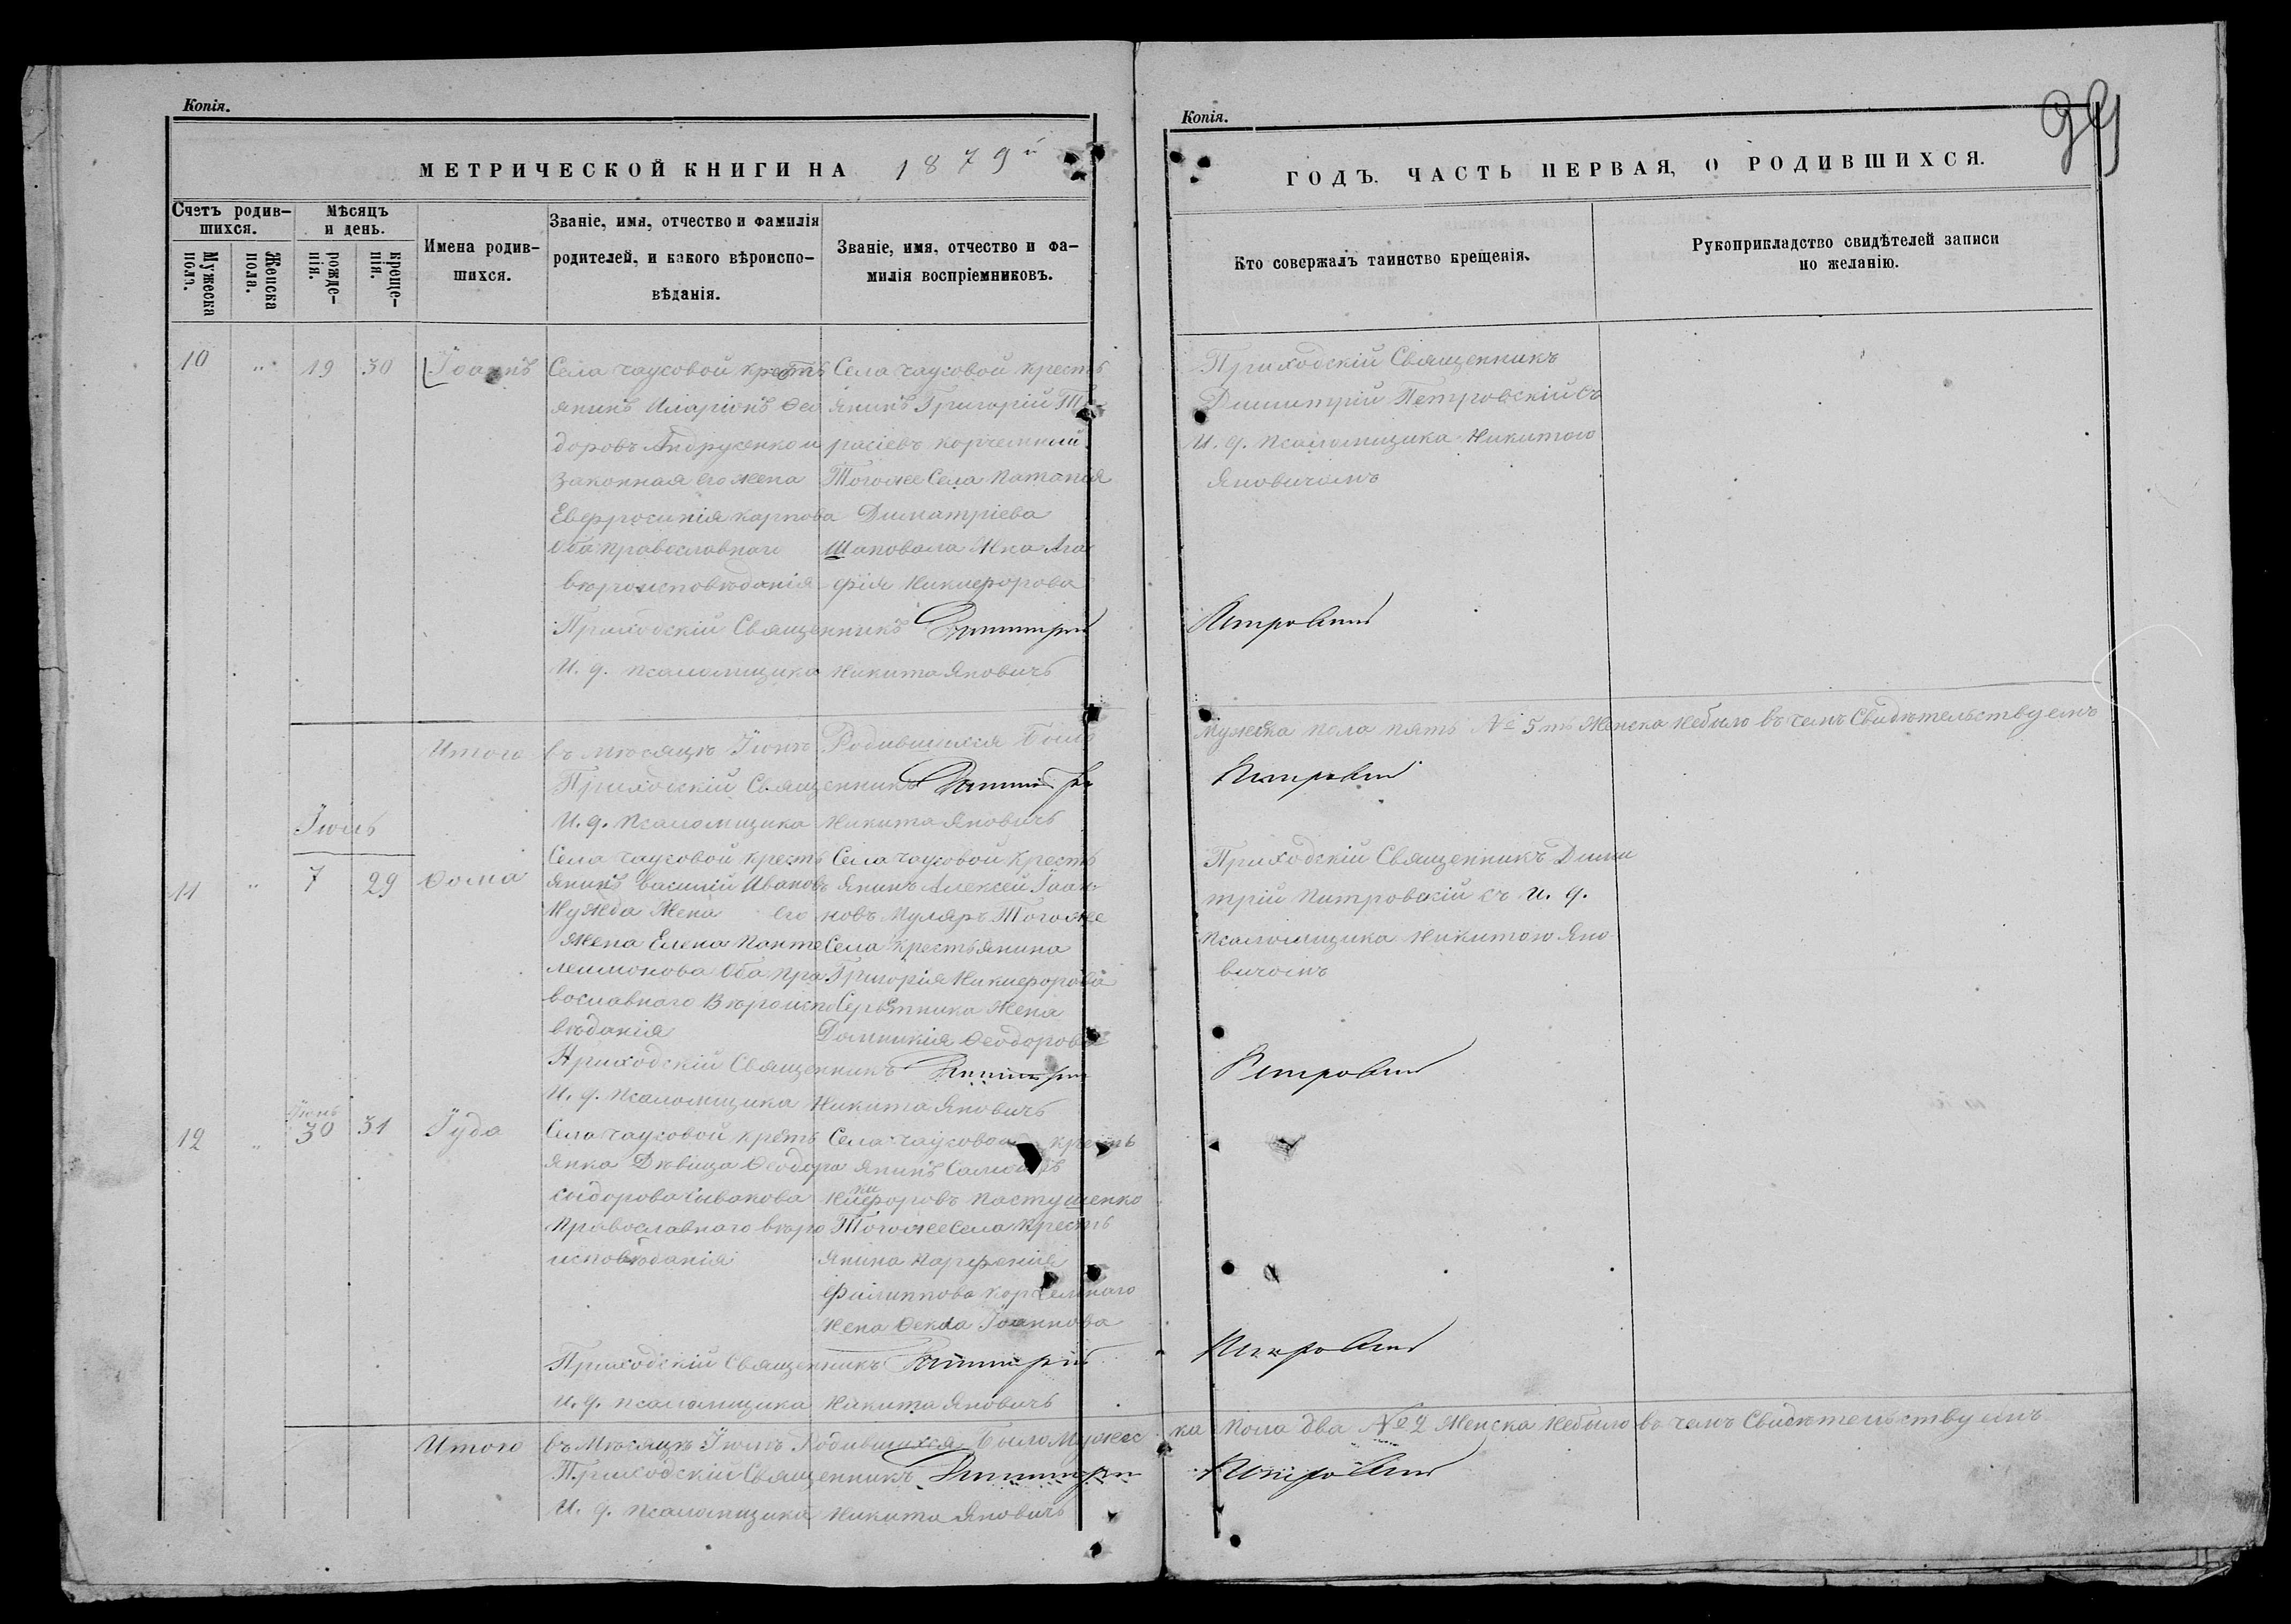 Копія.
МЕТРИЧЕСКОЙ КНИГИ НА 1879й
Счетъ родив-
шихся.
Мужеска
пола.
Женска
пола.
Мѣсяцъ
и день.
рожде-
нія.
креще-
нія.
Имена родив-
шихся.
Званіе, имя, отчество и фамилія
родителей, и какого вѣроиспо-
вѣданія.
Званіе, имя, отчество и фа-
милія воспріемниковъ.
10 " 19 30 Іоаннъ
Села Чаусовой кресть
янинъ Иларіонъ Ѳео
доровъ Андрусенко и
законная его жена
Евфросинія Карпова
Оба православнаго
вѣроисповѣданія
Села Чаусовой кресть
янинъ Григорій
расіевъ Корчемный
Тогоже Села
Диматріева
Шаповала Жна Ага
фія Никифорова
Приходскій Священникъ Димитрій
И. д. псаломщика Никита Яновичъ
Итого въ мѣсяцѣ Іюнѣ Родившихся Было
Приходскій Священникъ Димитрій
И. д. Псаломщика Никита Яновичъ
Іюль
11 " 7 29 Ѳома
Села Чаусовой кресть
янинъ Василій Ивановъ
Мужда Жена его
Жена Елена Панте
леимонова Оба пра
вославнаго Вѣроиспо
вѣданія
Села Чаусовой Кресть
янинъ Алексей Іоан-
новъ Муляръ Тогоже
Села Крестьянина
Григорія Никифорова
Жена
Домникія Ѳеодорова
Приходскій Священникъ Димитрій
И. д. Псаломщика Никита Яновичъ
12 " Іюнь 30 31 Іуда
Села Чаусовой кресть
янка Дѣвица Ѳеодора
Сидорова Сивакова
Православнаго вѣро
исповѣданія
Села Чаусовой кресть
янинъ
Никифоровъ Пастушенко
Тогоже Села Кресть
янина Парфенія
Филиппова Корчемнаго
Жена Ѳекла Іоаннова
Приходскій Священникъ Димитрій
И. д. псаломщика Никита Яновичъ
Итого въ Мѣсяцѣ Іюлѣ Родившихся Было Мужес
Приходскій Священникъ Димитрій
И. д. Псаломщика Никита Яновичъ
Копія.
39
ГОДЪ. ЧАСТЬ ПЕРВАЯ, О РОДИВШИХСЯ.
Кто совержалъ таинство крещенія.
Рукоприкладство свидѣтелей записи
по желанію.
Приходскій Священникъ
Димитрій Петровскій съ
И. д. псаломщика Никитою
Яновичомъ
Петровскій
Мужеска пола пять № 5ть Женска Небыло въ чемъ Свидѣтельствуемъ
Петровскій
Приходскій Священникъ Дими
трій Питровскій съ И. д.
Псаломщика Никитою Яно
вичомъ
Петровскій
Петровскій
ка Пола два № 2 Женска Небыло въ чемъ Свидѣтельствуемъ
Петровскій